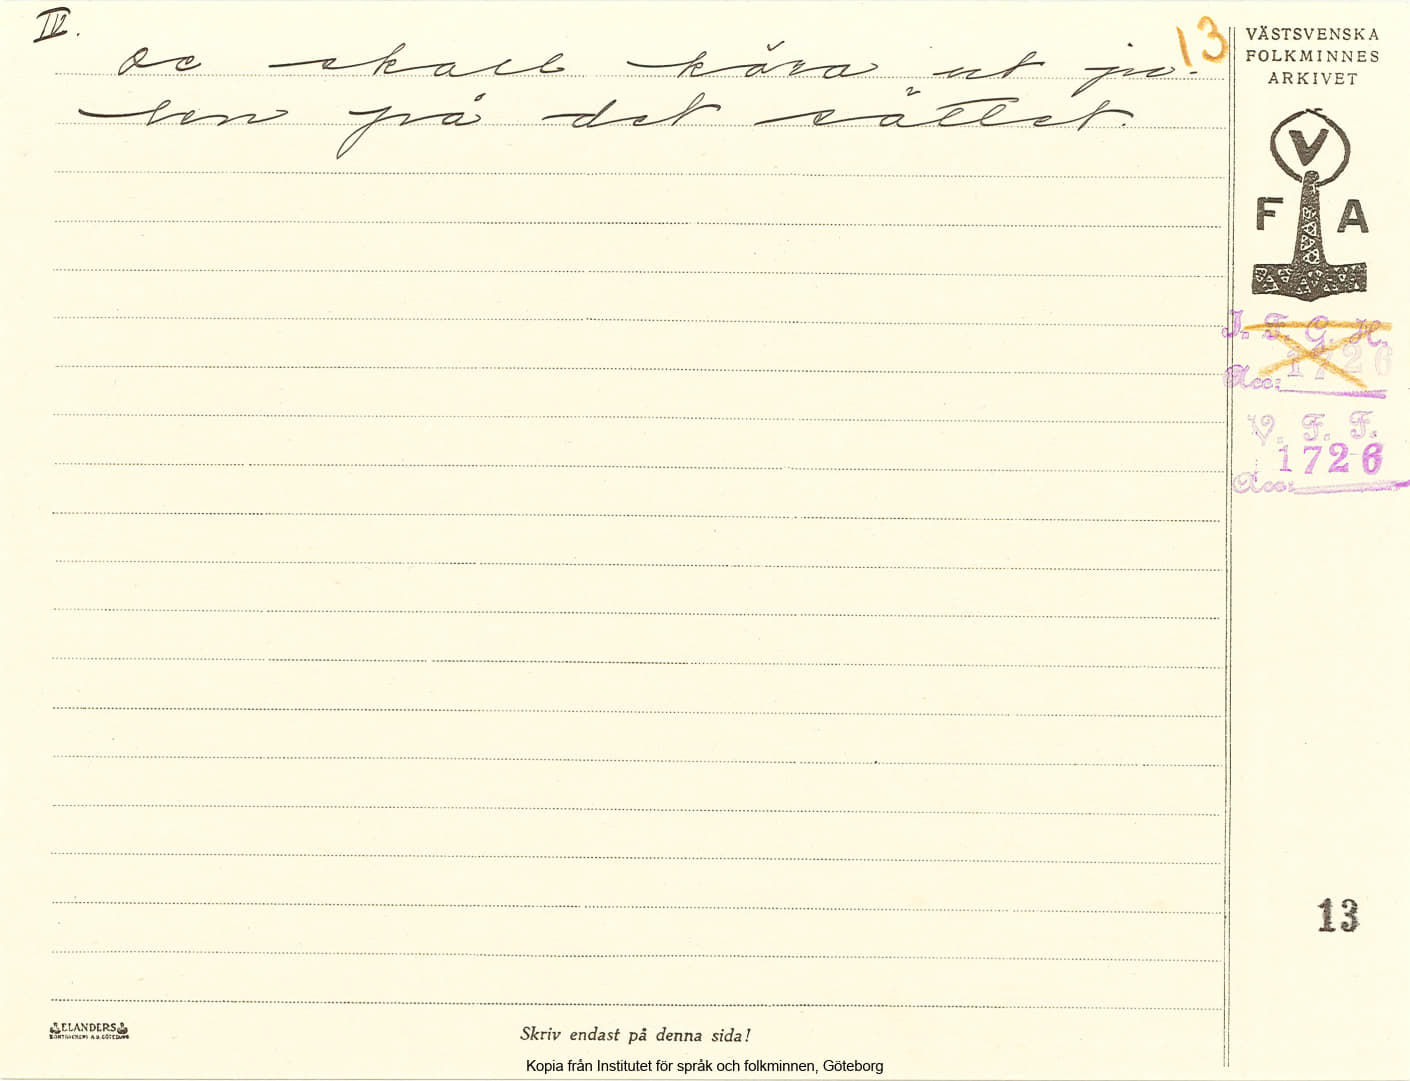 IV.
13
De skall köra ut ju-
len på det sättet.
VÄSTSVENSKA
FOLKMINNES
ARKIVET
V
F A
I. F. G. H.
1726
Acc:
V. F. F.
1726
Acc:
13
ELANDERS
Skriv endast på denna sida!
Kopia från Institutet för språk och folkminnen, Göteborg